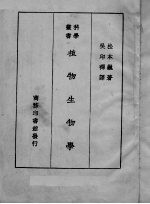 松本巍著
吳印禪譯
科學叢書
植物生物學
商務印書館發行